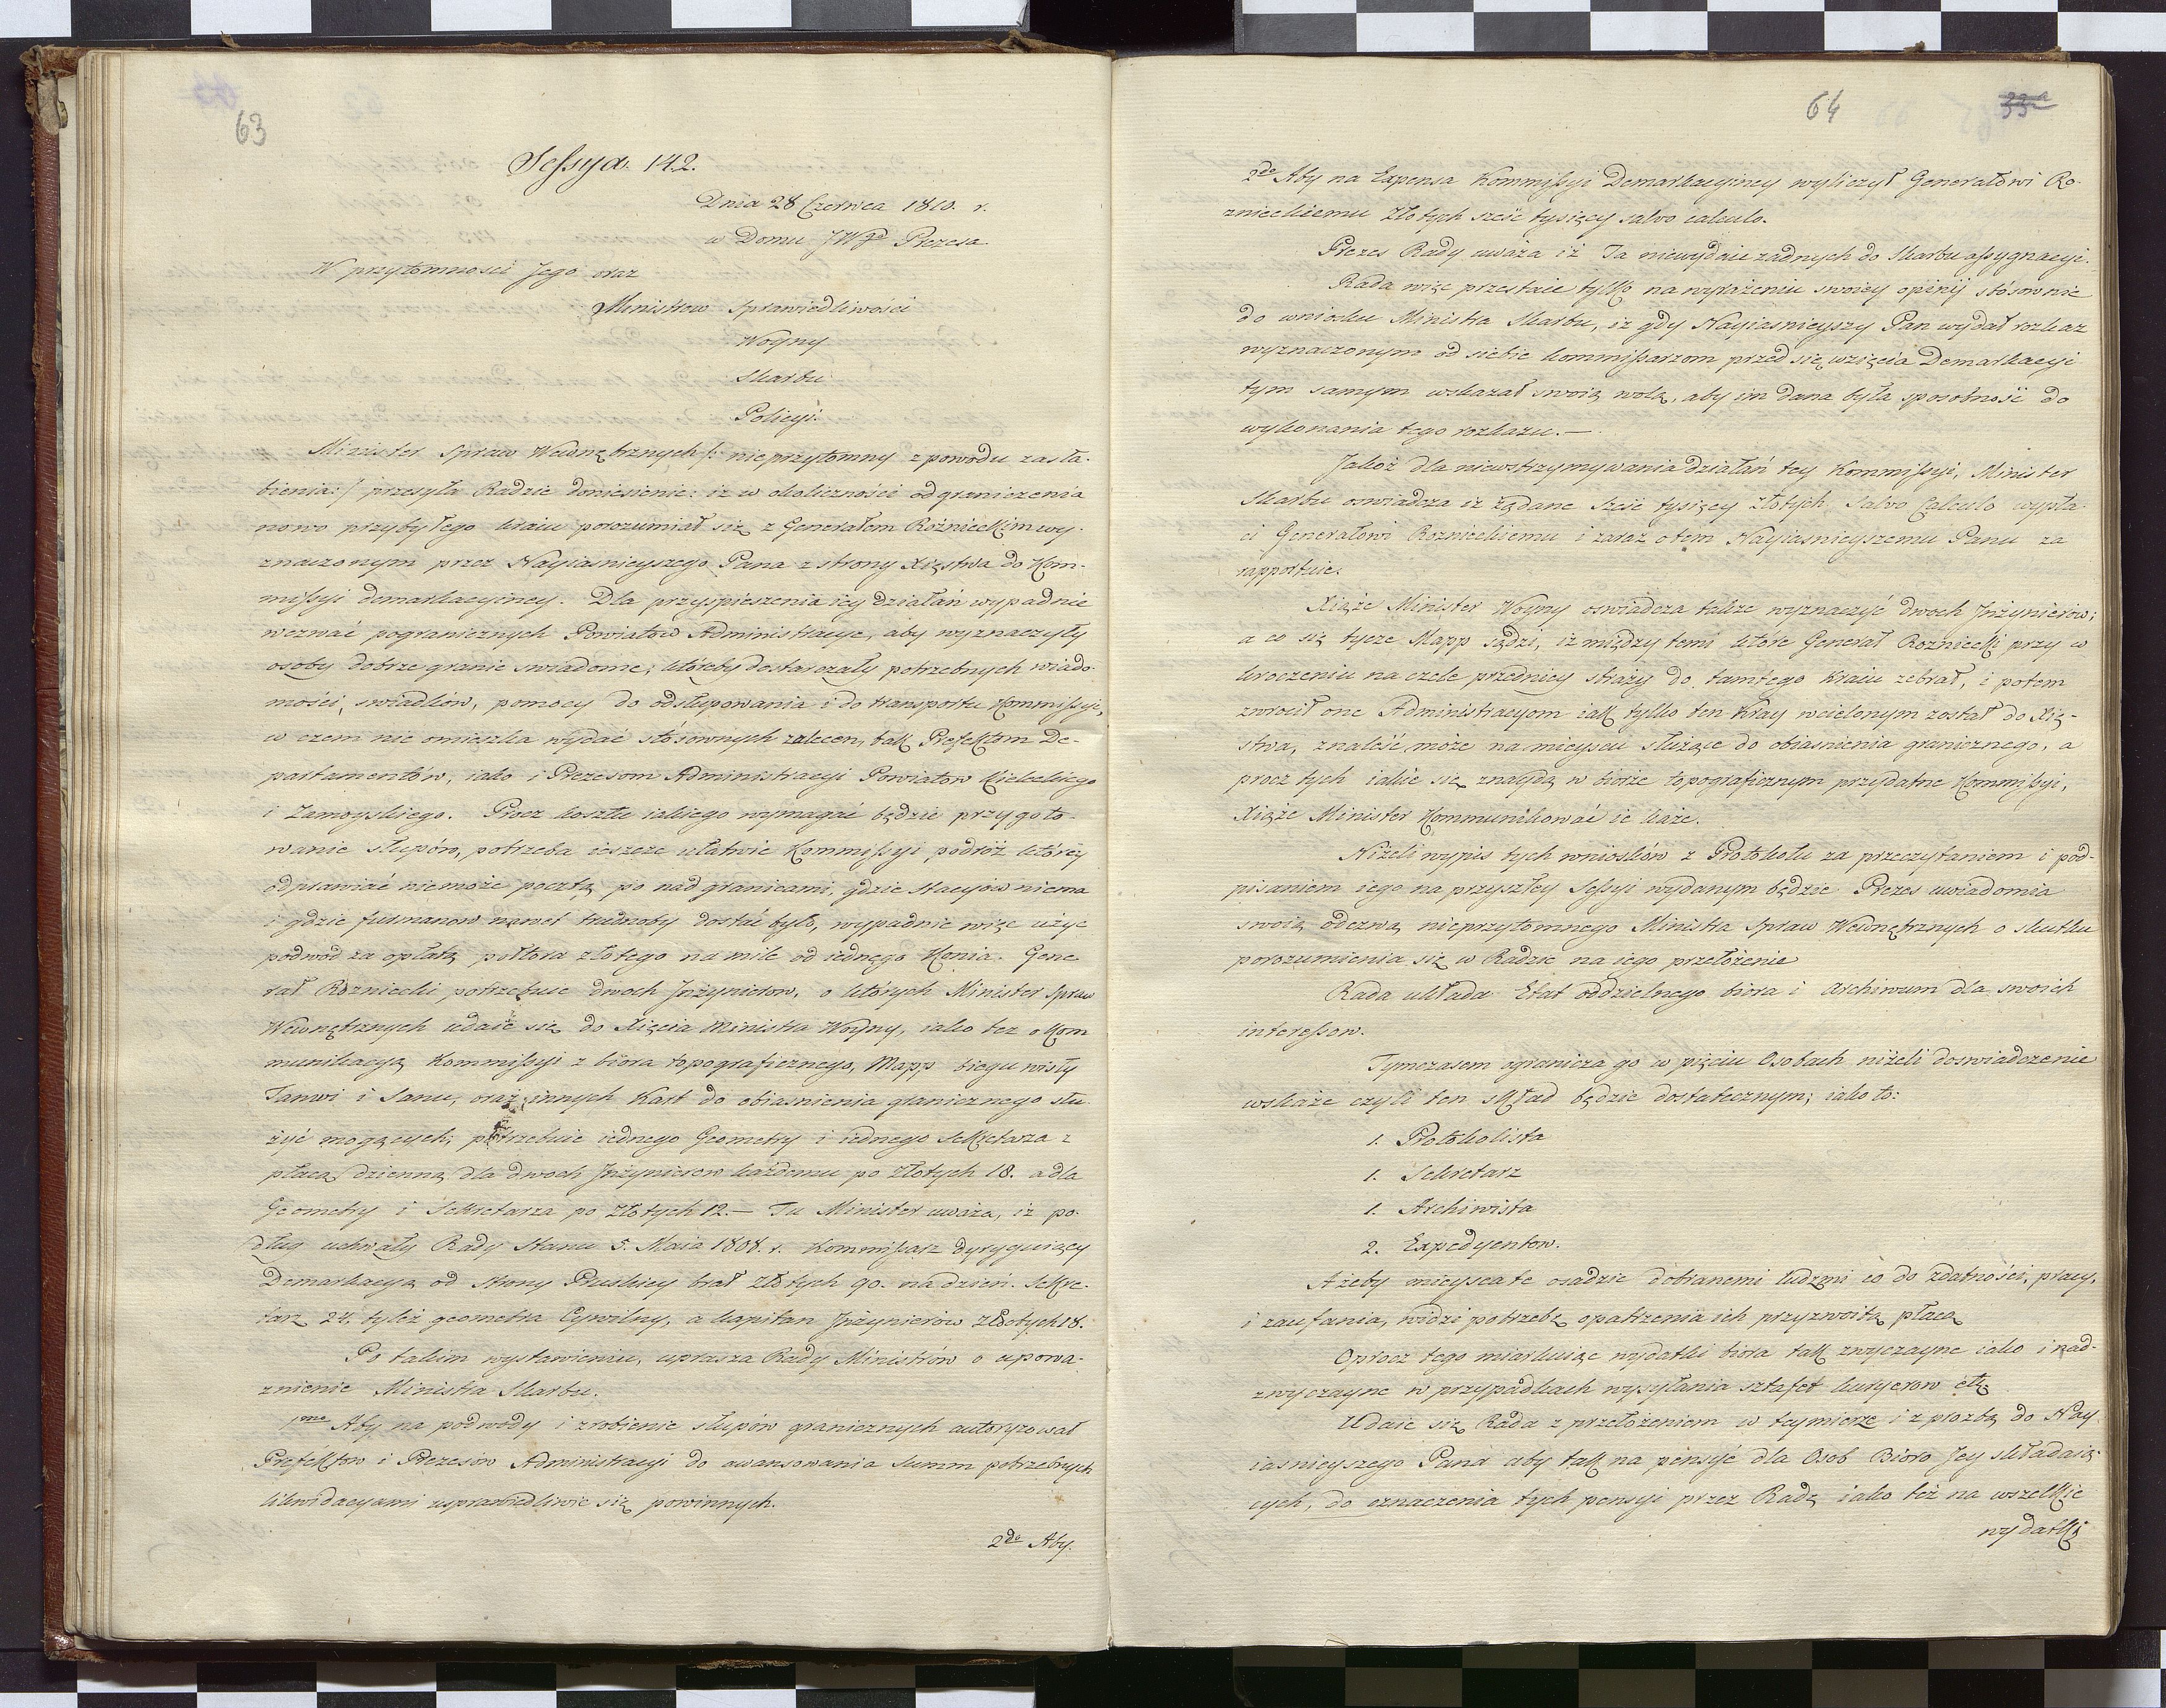 63
Sessya 142.
Dnia 28 Czerwca 1810. r.
w Domu JWgo Prezesa
W przytomnosci Jego oraz
Ministrow Sprawiedliwości
Woyny
Skarbu
Policyi.
Minister Spraw Wewnętrznych /: nieprzytomny z powodu zasła-
bienia :/ przesyła Radzie doniesienie: iż w okoliczności odgraniczenia
nowo przybyłego kraiu porozumiał się z Generałem Rożnieckim wy-
znaczonym przez Nayiasnieyszego Pana z strony Xięstwa do Kom-
missyi demarkacyiney. Dla przyspieszenia iey działań wypadnie
wezwać pogranicznych Powiatow Administracye, aby wyznaczyły
osoby dobrze granic swiadome, któreby dostarczały potrzebnych wiado-
mości, swiadków, pomocy do odsłupowania i do transportu Kommissyi,
w czem nie omieszka wydać stósownych zaleceń, tak Prefektom De-
partamentów, iako i Prezesom Administracyi Powiatow Kieleckiego
i Zamoyskiego. Procz kosztu iakiego wymagać będzie przygoto-
wanie słupów, potrzeba ieszcze ułatwić Kommissyi podróż którey
odprawiać niemoże pocztą po nad granicami, gdzie stacyiow niema
i gdzie furmanow nawet trudnoby dostać było, wypadnie więc użyć
podwód za opłatą połtora złotego na mile od iednego Konia. Gene
rał Rozniecki potrzebuie dwoch Jnżynierow, o których Minister Spraw
Wewnętrznych udaie się do Xięcia Ministra Woyny, iako tez o Kom
munikacyą Kommissyi z biora topograficznego, Mapp biegu wisły
Tanwi i Sanu, oraz innych Kart do obiasnienia granicznego słu
żyć mogących; potrzebuie iednego Geometry i iednego Sekretarza z
płacą dzienną dla dwoch Jnżynierow każdemu po Złotych 18. a dla
Geometry i Sekretarza po Złotych 12.— Tu Minister uważa, iż po-
dług uchwały Rady Stanu 5. Maia 1808. r. Kommissarz dyryguiący
Demarkacyą od strony Pruskiey brał Złotych 90. na dzień. Sekre-
tarz 24. tyleż geometra Cywilny, a kapitan Jnżynierów złotych 18.
Po takim wystawieniu, uprasza Rady Ministrów o upowa-
znienie Ministra Skarbu.
1mo Aby na podwody i zrobienie słupów granicznych autoryzował
Prefektow i Prezesów Administracyi do awansowania Summ potrzebnych
likwidacyami usprawiedliwić się powinnych.
2do Aby.
64
33a
2do Aby na Expensa Kommissyi Demarkacyiney wyliczył Generałowi Ro-
znieckiemu Złotych sześć tysięcy salvo calculo.
Prezes Rady uważa iż Ta niewydaie żadnych do Skarbu assygnacyi.
Rada więc przestaie tylko na wyrażeniu swoiey opinij stósownie
do wniosku Ministra Skarbu, iż gdy Nayiasnieyszy Pan wydał rozkaz
wyznaczonym od siebie kommissarzom przed się wzięcia Demarkacyi
tym samym wskazał swoią wolą, aby im dana była sposobność do
wykonania tego rozkazu.—
Jakoż dla niewstrzymywania działań tey Kommissyi, Minister
Skarbu oswiadcza iż żądane sześć tysięcy złotych Salvo Calculo wypła-
ci Generałowi Roznieckiemu i zaraz o tem Nayiasnieyszemu Panu za
rapportuie.
Xiąże Minister Woyny oswiadcza także wyznaczyć dwoch Jnżynierów;
a co się tycze Mapp sądzi, iż między temi które Generał Rozniecki przy w
kroczeniu na czele przedniey straży do tamtego Kraiu zebrał, i potem
zwrocił one Administracyom iak tylko ten Kray wcielonym został do Xię-
stwa, znaleść może na mieyscu służące do obiasnienia granicznego, a
procz tych iakie się znaydą w biórze topograficznym przydatne Kommissyi,
Xiąże Minister Kommunikować ie każe.
Niżeli wypis tych wniosków z Protokołu za przeczytaniem i pod-
pisaniem iego na przyszłey Sessyi wydanym będzie Prezes uwiadomia
swoią odezwą nieprzytomnego Ministra Spraw Wewnętrznych o skutku
porozumienia się w Radzie na iego przełożenie
Rada układa Etat oddzielnego biora i Archiwum dla swoich
interessow.
Tymczasem ogranicza go w pięciu Osobach niżeli doswiadczenie
wskaże czyli ten skład będzie dostatecznym; iako to:
1. Protokolista
1. Sekretarz
1. Archiwista
2. Expedyentow.
Ażeby mieysca te osadzić dobranemi ludzmi co do zdatności, pracy,
i zaufania, widzi potrzebę opatrzenia ich przyzwoitą płacą
Oprocz tego miarkuiąc wydatki biora tak zwyczayne iako i nad-
zwyczayne w przypadkach wysyłania sztafet kuryerow etc
Udaie się Rada z przełożeniem w teymierze i z prozbą do Nay
iasnieyszego Pana aby tak na pensye dla Osob Bióro Jey składaią-
cych, do oznaczenia tych pensyi przez Radę iako też na wszelkie
wydatki